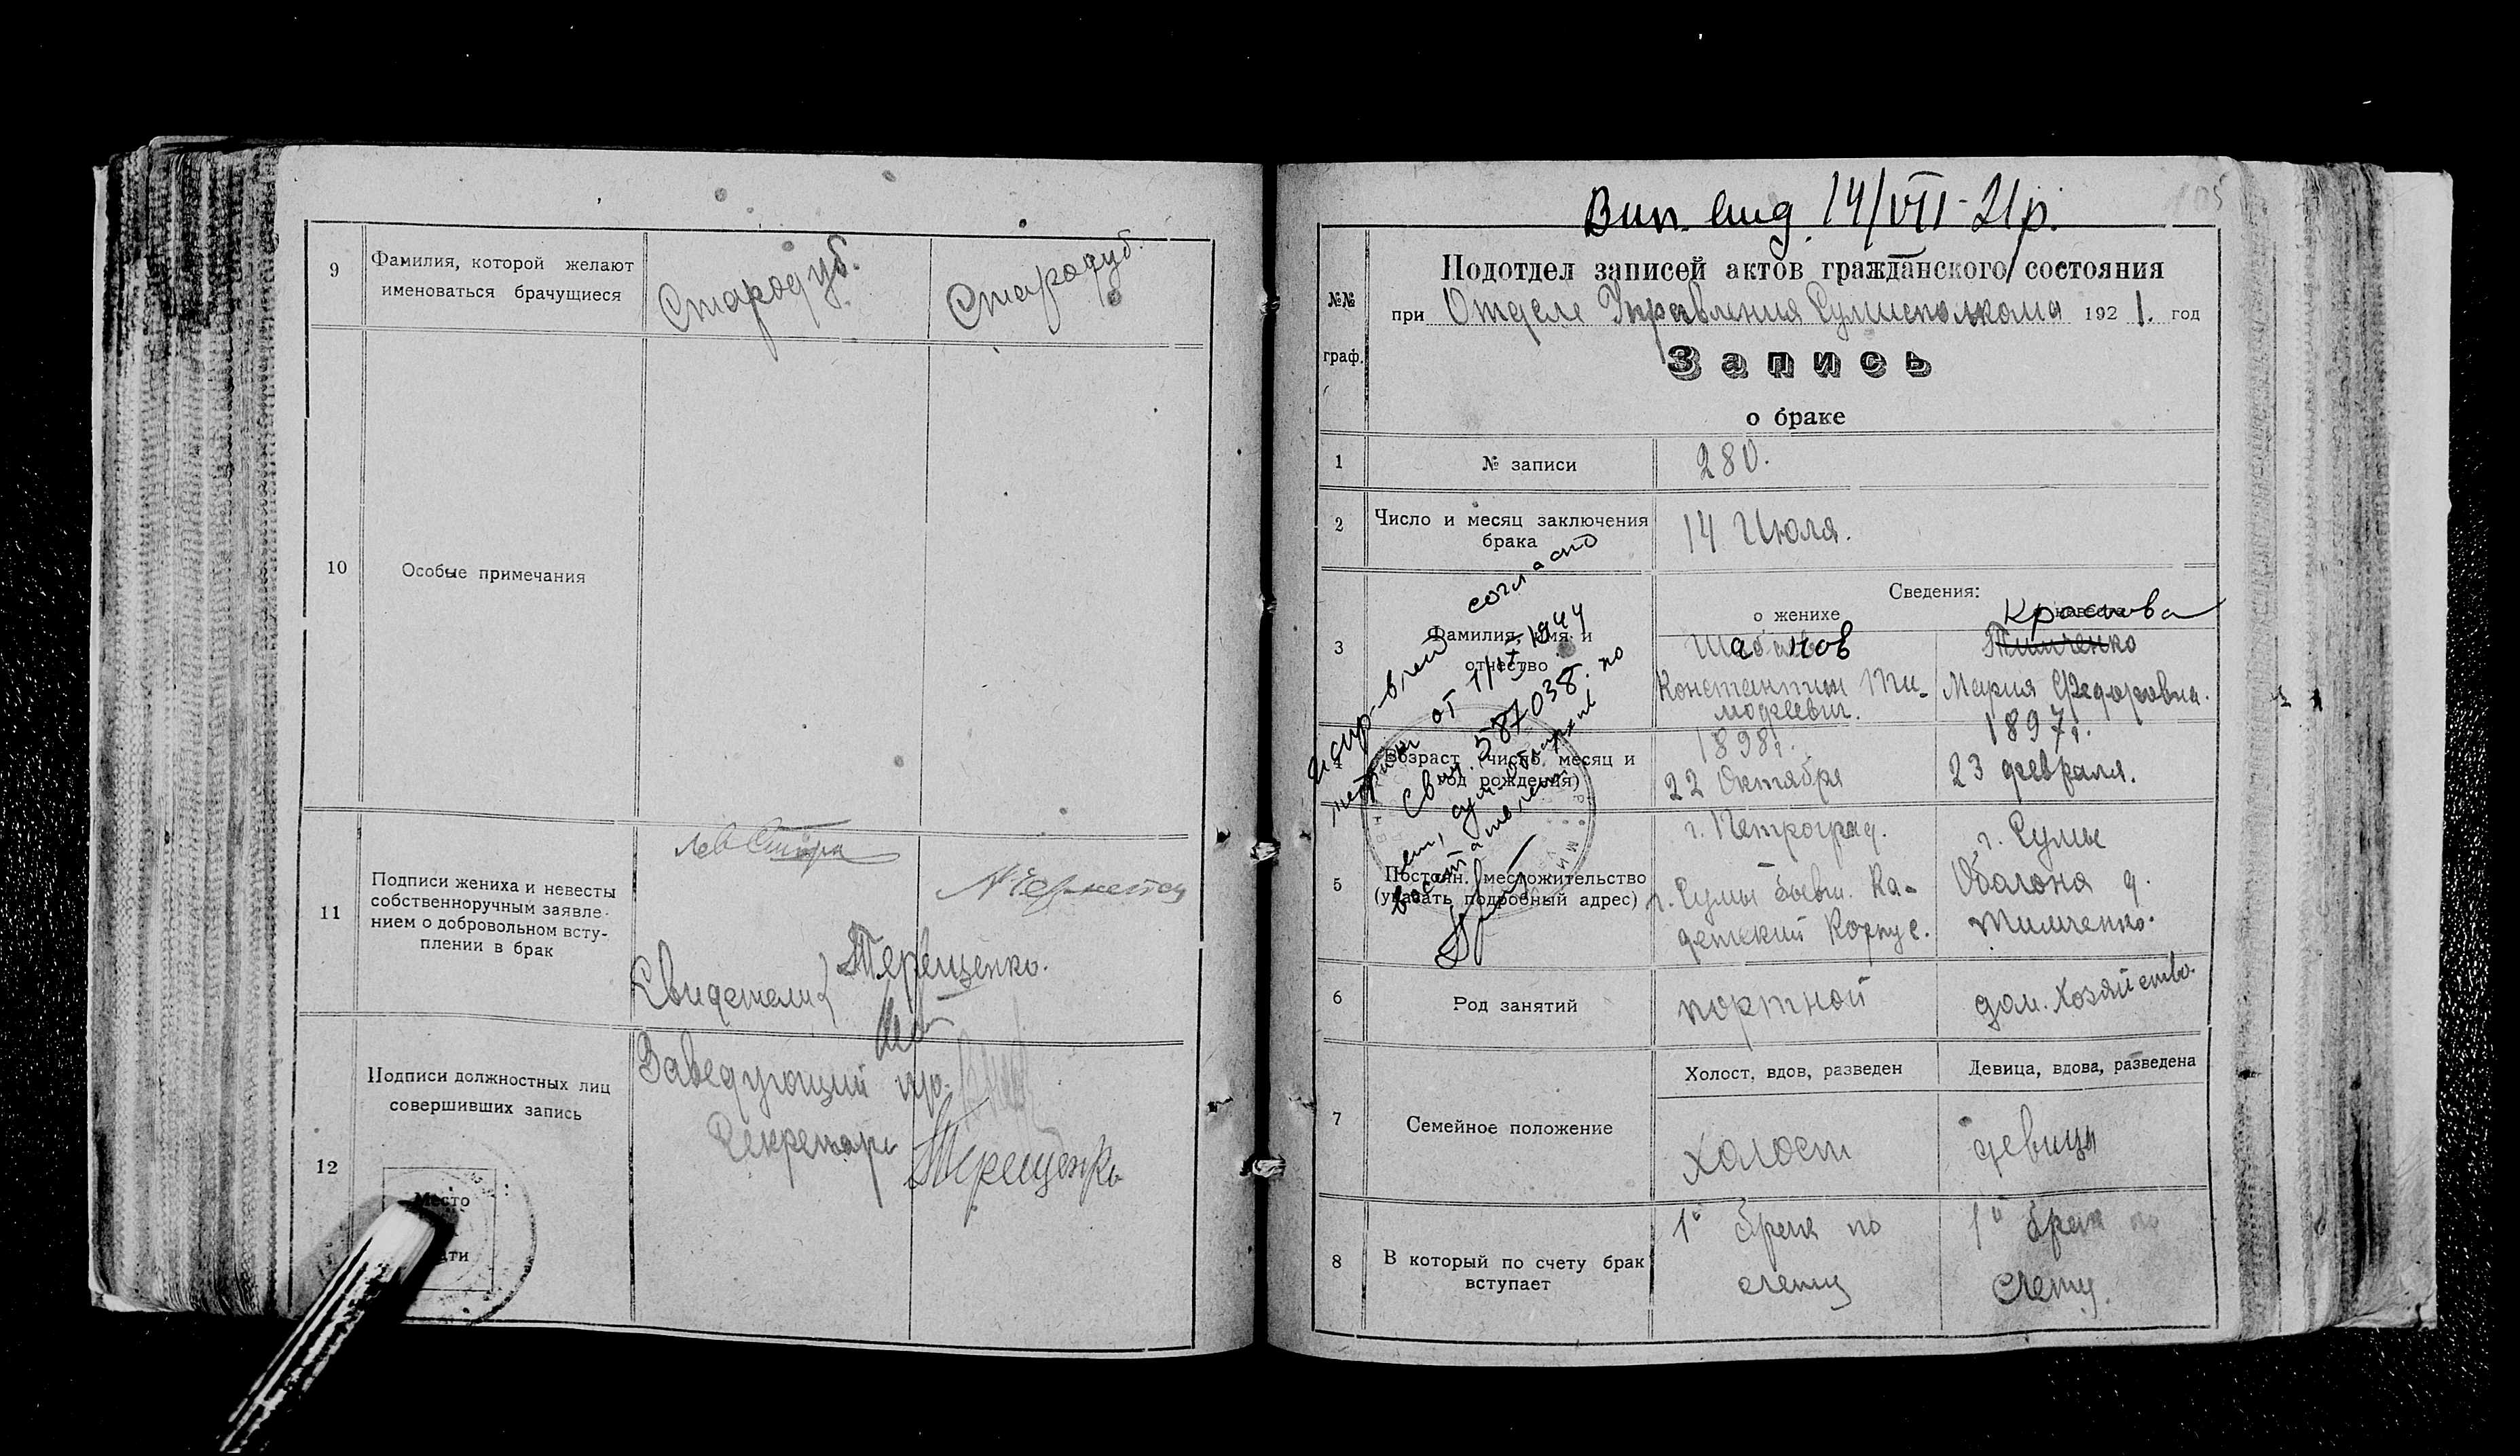 9
Фамилия, которой желают
именоваться брачущиеся
Стародуб.
Стародуб.
10
Особые примечания
11
Подписи жениха и невесты
собственноручным заявле-
нием о добровольном всту-
плении в брак
Свидетели
Терещенко.
12
Подписи должностных лиц
совершивших запись
Заведующий
Секретарь
Терещенко
Место
Вип. 14/VII-21р.
105
№№
граф.
Подотдел записей актов гражданского состояния
при Отделе Управления Сумисполкома 1921. год
Запись
о браке
1
№ записи
280.
2
Число и месяц заключения
брака
14 Июля.
согласно
3
Фамилия, имя и
отчество
Сведения:
о женихе
Шабанов
Константин Ти-
мофеевич.
Краснова
Тимченко
Мария Федоровна.
от 1944
Свид. 587038. по
4
Возраст (число, месяц и
год рождения)
1898г.
22 Октября
1897г.
23 февраля.
5
Постоян. местожительство
(указать подробный адрес)
г. Петроград.
г. Сумы бывш. Ка-
детский Корпус.
г. Сумы
Оболона д.
Тимченко.
6
Род занятий
портной
дом. хозяйство.
7
Семейное положение
Холост, вдов, разведен
Девица, вдова, разведена
холост
девица
8
В который по счету брак
вступает
1й брак по
счету
1й брак по
счету.